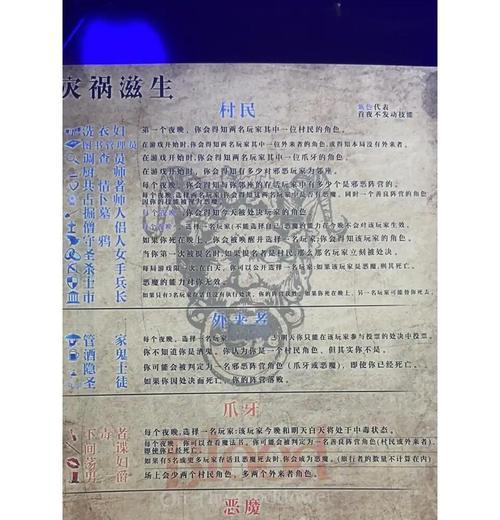 灾祸滋生
村民
紫色代表
首夜不发动技能
洗衣妇 第一个夜晚，你会得知两名玩家其中一位村民的角色。
图书管理员 在游戏开始时，你会得知两名玩家其中一位外来者的角色，或得知本局没有外来者。
调查员 在游戏开始时，你会得知两名玩家其中一位爪牙的角色。
厨师 在游戏开始时，你会得知有多少对邪恶玩家为邻座。
共情者 每个夜晚，你会得知邻座的存活玩家中有多少个是邪恶阵营的。
占卜师 每个夜晚选择两名玩家，你会得知两名玩家是否有恶魔，同时一个善良阵营的角色
因你的能力被视为恶魔。
掘墓人 每个夜晚，你会得知今天被处决玩家的角色。
僧侣 每个夜晚，选择一名玩家(不能选择自己)恶魔的能力在今晚不会对该玩家生效。
守鸦人 如果你死在晚上，你会被唤醒并选择一名玩家：你会得知该玩家的角色。
圣女 当你第一次被提名时，如果提名者是村民，那么那名玩家立刻被处决。
杀手 每局游戏限一次，在白天，你可以公开选择一名玩家：如果该玩家是恶魔，则其死亡。
士兵 恶魔的能力对你无效。
市长 如果只有3名玩家存活且没有执行处决，你的阵营获胜。如果你死在晚上，另一名玩家可能替你死去。
外来者
管家 每个夜晚，选择一名玩家明天你只能在该玩家参与投票的处决中投票。
酒鬼 你不知道你是酒鬼。你认为你是一个村民角色，但其实你不是。
隐士 你可能会被判定为一名邪恶阵营角色（爪牙或恶魔），即使你已经死亡。
圣徒 如果你因处决而死亡，你的阵营落败。
爪牙
下毒者 每个夜晚，选择一名玩家：该玩家今晚和明天白天将处于中毒状态。
间谍 每个夜晚，你可以查看魔法书。你可能会被判定为一名善良阵营角色(村民或外来者)，
即使你已经死亡。
荡妇 如果有5名或更多玩家存活且恶魔死去时，你会成为恶魔。(旅行者的数量不计算在内)
男爵 场上会少两个村民角色，多两个外来者角色。
恶魔